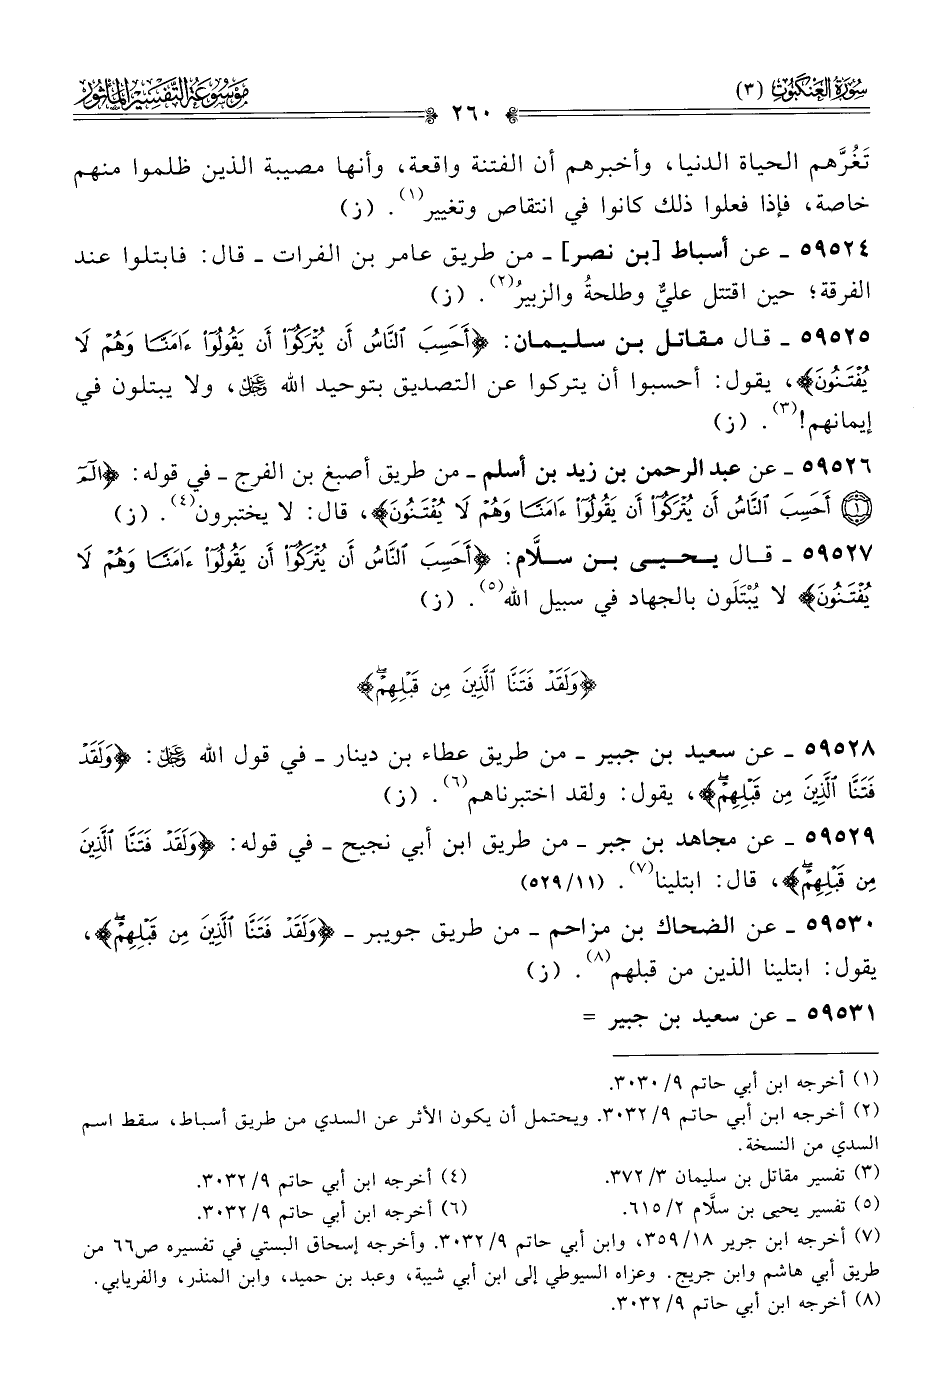 سورة العنكبوت (٣)
٢٦٠
موسوعة التفسير المأثور
تَغُرَّهم الحياة الدنيا، وأخبرهم أن الفتنة واقعة، وأنها مصيبة الذين ظلموا منهم
خاصة، فإذا فعلوا ذلك كانوا في انتقاص وتغيير(١). (ز)
٥٩٥٢٤ ـ عن أسباط [بن نصر] ـ من طريق عامر بن الفرات ـ قال: فابتلوا عند
الفرقة؛ حين اقتتل عليٌّ وطلحةُ والزبيرُ(٢). (ز)
٥٩٥٢٥ ـ قال مقاتل بن سليمان: ﴿أَحَسِبَ ٱلنَّاسُ أَن يُتْرَكُوٓا۟ أَن يَقُولُوٓا۟ ءَامَنَّا وَهُمْ لَا
يُفْتَنُونَ﴾، يقول: أحسبوا أن يتركوا عن التصديق بتوحيد الله ﷿، ولا يبتلون في
إيمانهم!(٣). (ز)
٥٩٥٢٦ ـ عن عبد الرحمن بن زيد بن أسلم ـ من طريق أصبغ بن الفرج ـ في قوله: ﴿الٓمٓ
۝١ أَحَسِبَ ٱلنَّاسُ أَن يُتْرَكُوٓا۟ أَن يَقُولُوٓا۟ ءَامَنَّا وَهُمْ لَا يُفْتَنُونَ﴾، قال: لا يختبرون(٤). (ز)
٥٩٥٢٧ ـ قال يحيى بن سلَّام: ﴿أَحَسِبَ ٱلنَّاسُ أَن يُتْرَكُوٓا۟ أَن يَقُولُوٓا۟ ءَامَنَّا وَهُمْ لَا
يُفْتَنُونَ﴾ لا يُبْتَلَون بالجهاد في سبيل الله(٥). (ز)
﴿وَلَقَدْ فَتَنَّا ٱلَّذِينَ مِن قَبْلِهِمْۖ﴾
٥٩٥٢٨ ـ عن سعيد بن جبير ـ من طريق عطاء بن دينار ـ في قول الله ﷿: ﴿وَلَقَدْ
فَتَنَّا ٱلَّذِينَ مِن قَبْلِهِمْۖ﴾، يقول: ولقد اختبرناهم(٦). (ز)
٥٩٥٢٩ ـ عن مجاهد بن جبر ـ من طريق ابن أبي نجيح ـ في قوله: ﴿وَلَقَدْ فَتَنَّا ٱلَّذِينَ
مِن قَبْلِهِمْۖ﴾، قال: ابتلينا(٧). (٥٢٩/١١)
٥٩٥٣٠ ـ عن الضحاك بن مزاحم ـ من طريق جويبر ـ ﴿وَلَقَدْ فَتَنَّا ٱلَّذِينَ مِن قَبْلِهِمْۖ﴾،
يقول: ابتلينا الذين من قبلهم(٨). (ز)
٥٩٥٣١ ـ عن سعيد بن جبير =
(١) أخرجه ابن أبي حاتم ٩/ ٣٠٣٠.
(٢) أخرجه ابن أبي حاتم ٩/ ٣٠٣٢. ويحتمل أن يكون الأثر عن السدي من طريق أسباط، سقط اسم
السدي من النسخة.
(٣) تفسير مقاتل بن سليمان ٣/ ٣٧٢.
(٤) أخرجه ابن أبي حاتم ٩/ ٣٠٣٢.
(٥) تفسير يحيى بن سلَّام ٢/ ٦١٥.
(٦) أخرجه ابن أبي حاتم ٩/ ٣٠٣٢.
(٧) أخرجه ابن جرير ١٨/ ٣٥٩، وابن أبي حاتم ٩/ ٣٠٣٢. وأخرجه إسحاق البستي في تفسيره ص٦٦ من
طريق أبي هاشم وابن جريج. وعزاه السيوطي إلى ابن أبي شيبة، وعبد بن حميد، وابن المنذر، والفريابي.
(٨) أخرجه ابن أبي حاتم ٩/ ٣٠٣٢.